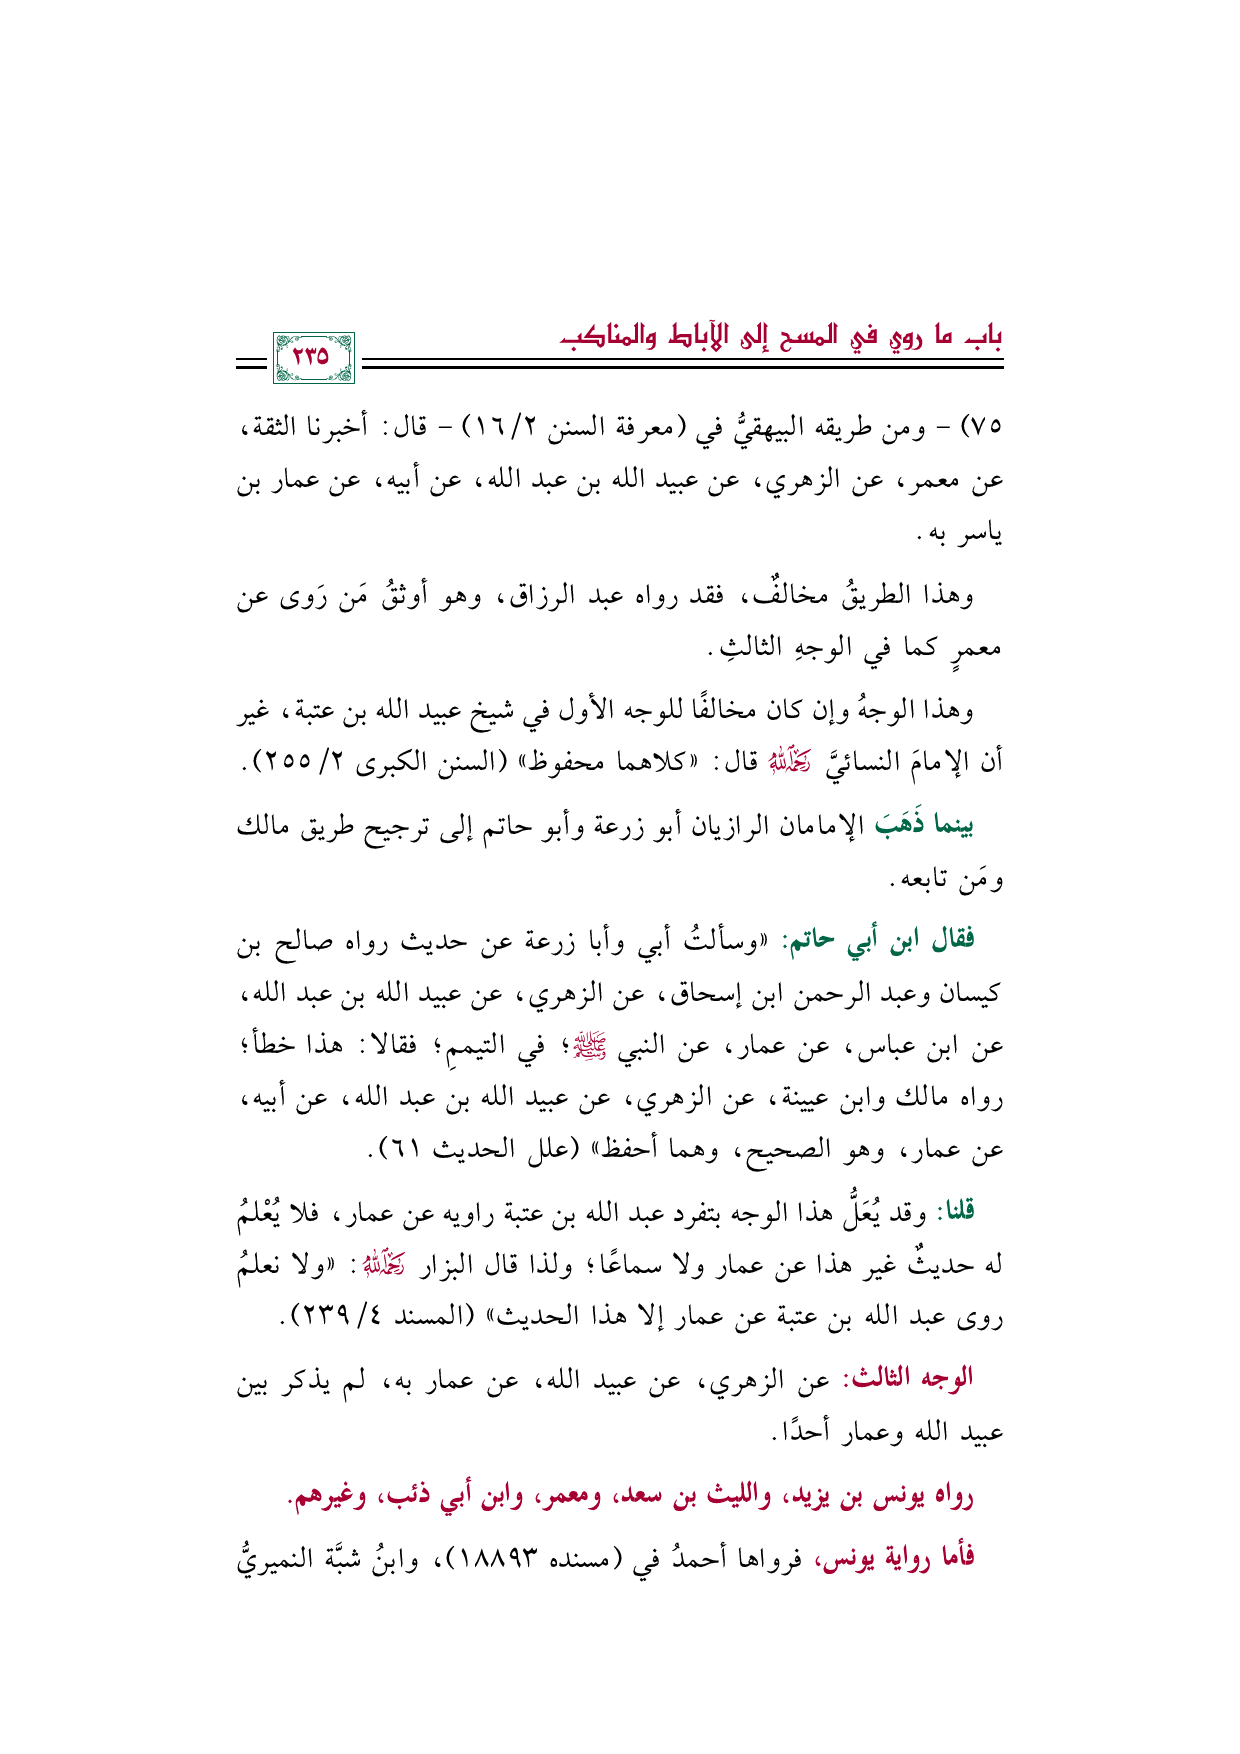 باب ما روي في المسح إلى الآباط والمناكب
٢٣٥
٧٥) - ومن طريقه البيهقيُّ في (معرفة السنن ٢/ ١٦) - قال: أخبرنا الثقة،
عن معمر، عن الزهري، عن عبيد الله بن عبد الله، عن أبيه، عن عمار بن
ياسر به.
وهذا الطريقُ مخالفٌ، فقد رواه عبد الرزاق، وهو أوثقُ مَن رَوى عن
معمرٍ كما في الوجهِ الثالثِ.
وهذا الوجهُ وإن كان مخالفًا للوجه الأول في شيخ عبيد الله بن عتبة، غير
أن الإمامَ النسائيَّ رحمه الله قال: «كلاهما محفوظ» (السنن الكبرى ٢/ ٢٥٥).
بينما ذَهَبَ الإمامان الرازيان أبو زرعة وأبو حاتم إلى ترجيح طريق مالك
ومَن تابعه.
فقال ابن أبي حاتم: «وسألتُ أبي وأبا زرعة عن حديث رواه صالح بن
كيسان وعبد الرحمن ابن إسحاق، عن الزهري، عن عبيد الله بن عبد الله،
عن ابن عباس، عن عمار، عن النبي ﷺ؛ في التيممِ؛ فقالا: هذا خطأ؛
رواه مالك وابن عيينة، عن الزهري، عن عبيد الله بن عبد الله، عن أبيه،
عن عمار، وهو الصحيح، وهما أحفظ» (علل الحديث ٦١).
قلنا: وقد يُعَلُّ هذا الوجه بتفرد عبد الله بن عتبة راويه عن عمار، فلا يُعْلمُ
له حديثٌ غير هذا عن عمار ولا سماعًا؛ ولذا قال البزار رحمه الله: «ولا نعلمُ
روى عبد الله بن عتبة عن عمار إلا هذا الحديث» (المسند ٤/ ٢٣٩).
الوجه الثالث: عن الزهري، عن عبيد الله، عن عمار به، لم يذكر بين
عبيد الله وعمار أحدًا.
رواه يونس بن يزيد، والليث بن سعد، ومعمر، وابن أبي ذئب، وغيرهم.
فأما رواية يونس، فرواها أحمدُ في (مسنده ١٨٨٩٣)، وابنُ شبَّة النميريُّ